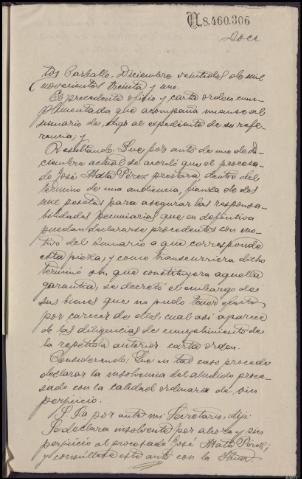 N8.460.306
Doce
to, Carballo, Diciembre veintidos de mil
novecientos treinta y uno.
El precedente oficio y carta orden cum-
plimentada que acompaña únanse al
sumario de su expediente de su refe-
rencia; y
Resultando: Que por auto de uno de Di-
ciembre actual se acordó que el procesa-
do José Mato Pérez prestara dentro del
término de una audiencia, fianza de dos
mil pesetas para asegurar las responsa-
bilidades pecuniarias que en definitiva
puedan declararse procedentes con mo-
tivo del sumario a que corresponde
esta pieza; y como transcurriera dicho
término sin que constituyera aquella
garantía, se decretó el embargo de
sus bienes que no pudo tener efecto
por carecer de ellos cual así aparece
de las diligencias de cumplimiento de
la repetida anterior carta orden.
Considerando: Que en tal caso procede
declarar la insolvencia del aludido proce-
sado con la calidad ordinaria de sin
perjuicio.
S.Sª por ante mi Secretario, dijo:
Se declara insolvente por ahora y sin
perjuicio al procesado José Mato Pérez,
y consúltese este auto con la